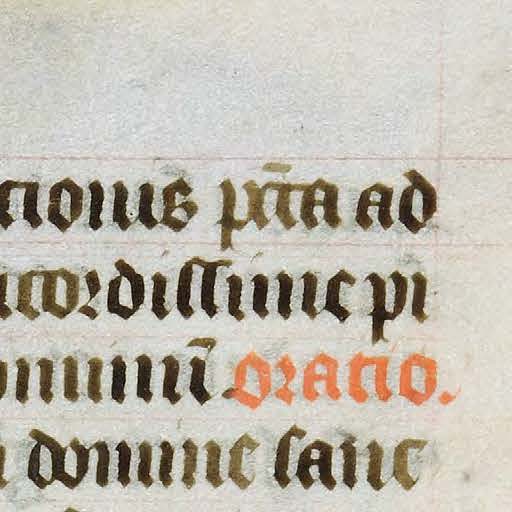 cionis pc̄ta ad
icordissime pi
ominū oratio.
domine sanc